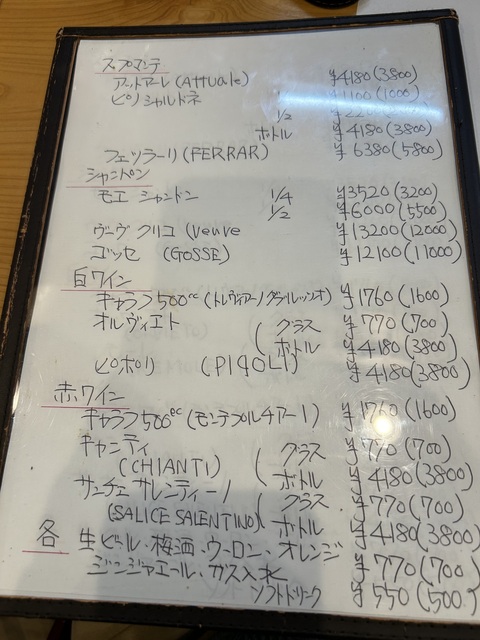 スプマンテ
アットアーレ(Attuale) ¥4180(3800)
ピノシャルドネ ¥1100(1000)
1/2
ボトル ¥4180(3800)
フェッラーリ(FERRAR) ¥6380(5800)
シャンパン
モエ シャンドン 1/4 ¥3520(3200)
1/2 ¥6000(5500)
ヴーヴ クリコ (Veuve ¥13200(12000)
ゴッセ (GOSSE) ¥12100(11000)
白ワイン
キャラフ500cc(トレヴィアーノ ¥1760(1600)
オルヴィエト ( グラス ¥770(700)
ボトル ¥4180(3800)
ピポリ (PIPOLI) ¥4180(3800)
赤ワイン
キャラフ500cc(モンテプルチアーノ) ¥1760(1600)
キャンティ ( グラス ¥770(700)
(CHIANTI) ボトル ¥4180(3800)
サリーチェ サレンティーノ ( グラス ¥770(700)
(SALICE SALENTINO) ボトル ¥4180(3800)
各 生ビール・梅酒・ウーロン、オレンジ ¥770(700)
ジンジャエール・ガス入水
ソフトドリンク ¥550(500)